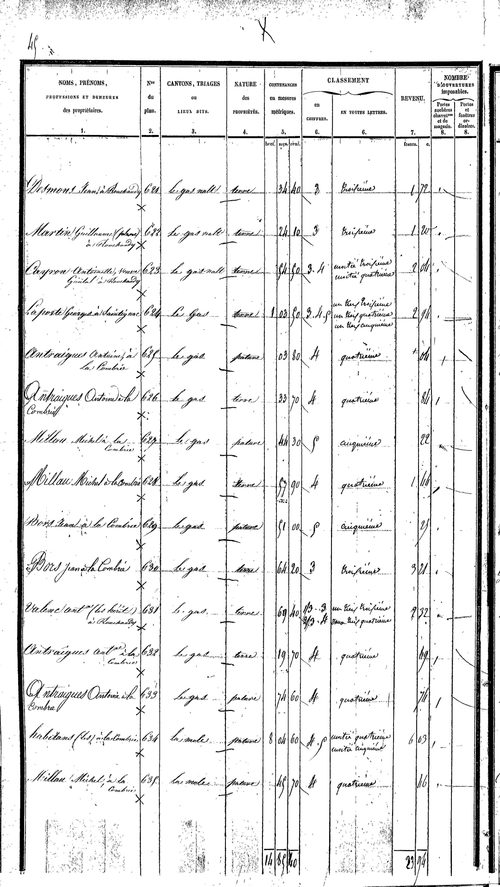 45
NOMS, PRÉNOMS,
PROFESSIONS ET DEMEURES
des propriétaires.
Nos
du
plan.
CANTONS, TRIAGES
ou
LIEUX DITS.
NATURE
des
PROPRIÉTÉS.
CONTENANCES
en mesures
métriques.
CLASSEMENT
en
CHIFFRES.
EN TOUTES LETTRES.
REVENU.
NOMBRE
D'OUVERTURES
imposables.
Portes
cochères
charret
et de
magasin.
Portes
et
fenêtres
ordinaires.
1. 2. 3. 4. 5. 6. 6. 7. 8. 8.
hect. ares. cent. francs. c.
Desmons Jean à 621 le gas nalt terre 34 40 3 troisième 1 72
Martin Guillaume à 622 le gas nalt terre 24 10 3 troisième 1 20
Cayron Antoinette, veuve à 623 le gas nalt terre 54 50 3-4 moitié troisième moitié quatrième 2 04
Laporte Georges à 624 le Gas terre 1 03 50 3-4-5 un tiers troisième un tiers quatrième un tiers cinquième 2 94
Antraigues Antoine à la Combrie 625 le gas pature 03 80 4 quatrième 04
Antraigues Antoine à la Combrie 626 le gas terre 33 70 4 quatrième 84
Millau Michel à la Combrie 627 le gas pature 44 30 5 cinquième 22
Millau Michel à la Combrie 628 le gas terre 57 90 4 quatrième 1 44
Bors Jean à la Combrie 629 le gas pature 51 00 5 cinquième 25
Bors Jean à la Combrie 630 le gas terre 64 20 3 troisième 3 21
Valenc ant. à 631 le gas terre 69 40 1/3-3 2/3-4 un tiers troisième deux tiers quatrième 2 32
Antraigues Ant. à la Combrie 632 le gas terre 19 70 4 quatrième 49
Antraigues Antoine à la Combrie 633 le gas pature 74 60 4 quatrième 74
habitans (les) à la Combrie 634 la mole pature 8 04 60 4-5 moitié quatrième moitié cinquième 6 03
Millau Michel à la Combrie 635 la mole pature 45 70 4 quatrième 46
14 85 40 23 94